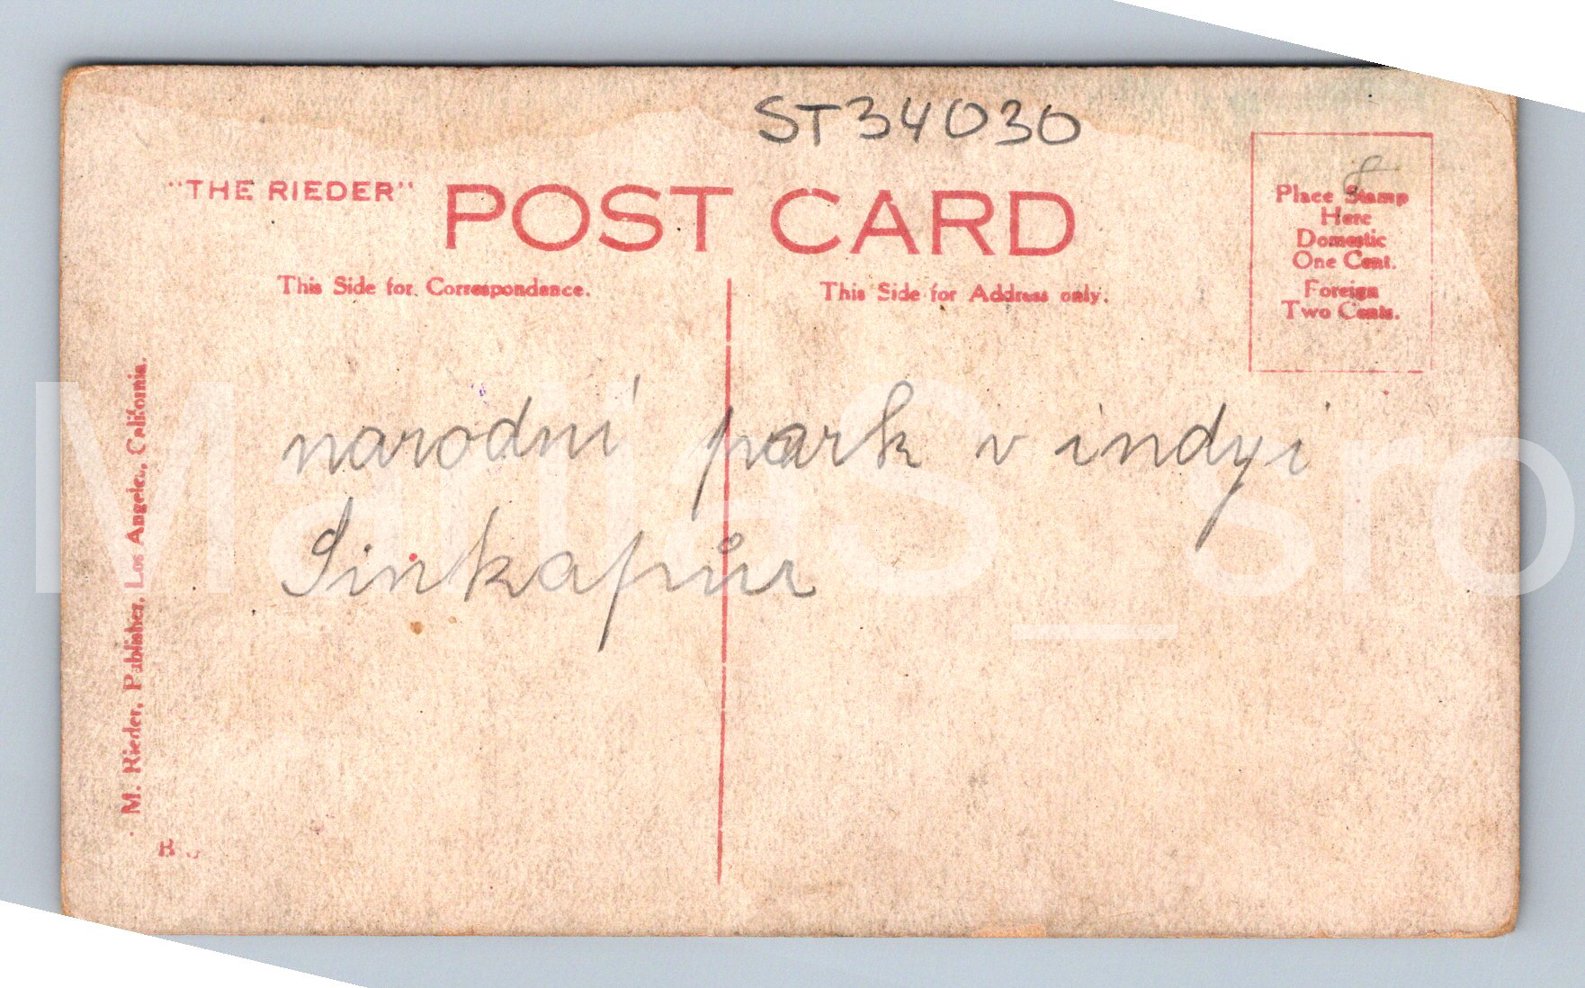 ST34030
"THE RIEDER" POST CARD
This Side for Correspondence.
This Side for Address only.
Place Stamp
Here
Domestic
One Cent.
Foreign
Two Cents.
8
narodní park v indyi
Sinkapůr
M. Rieder, Publisher, Los Angeles, California.
MartiaS_sro